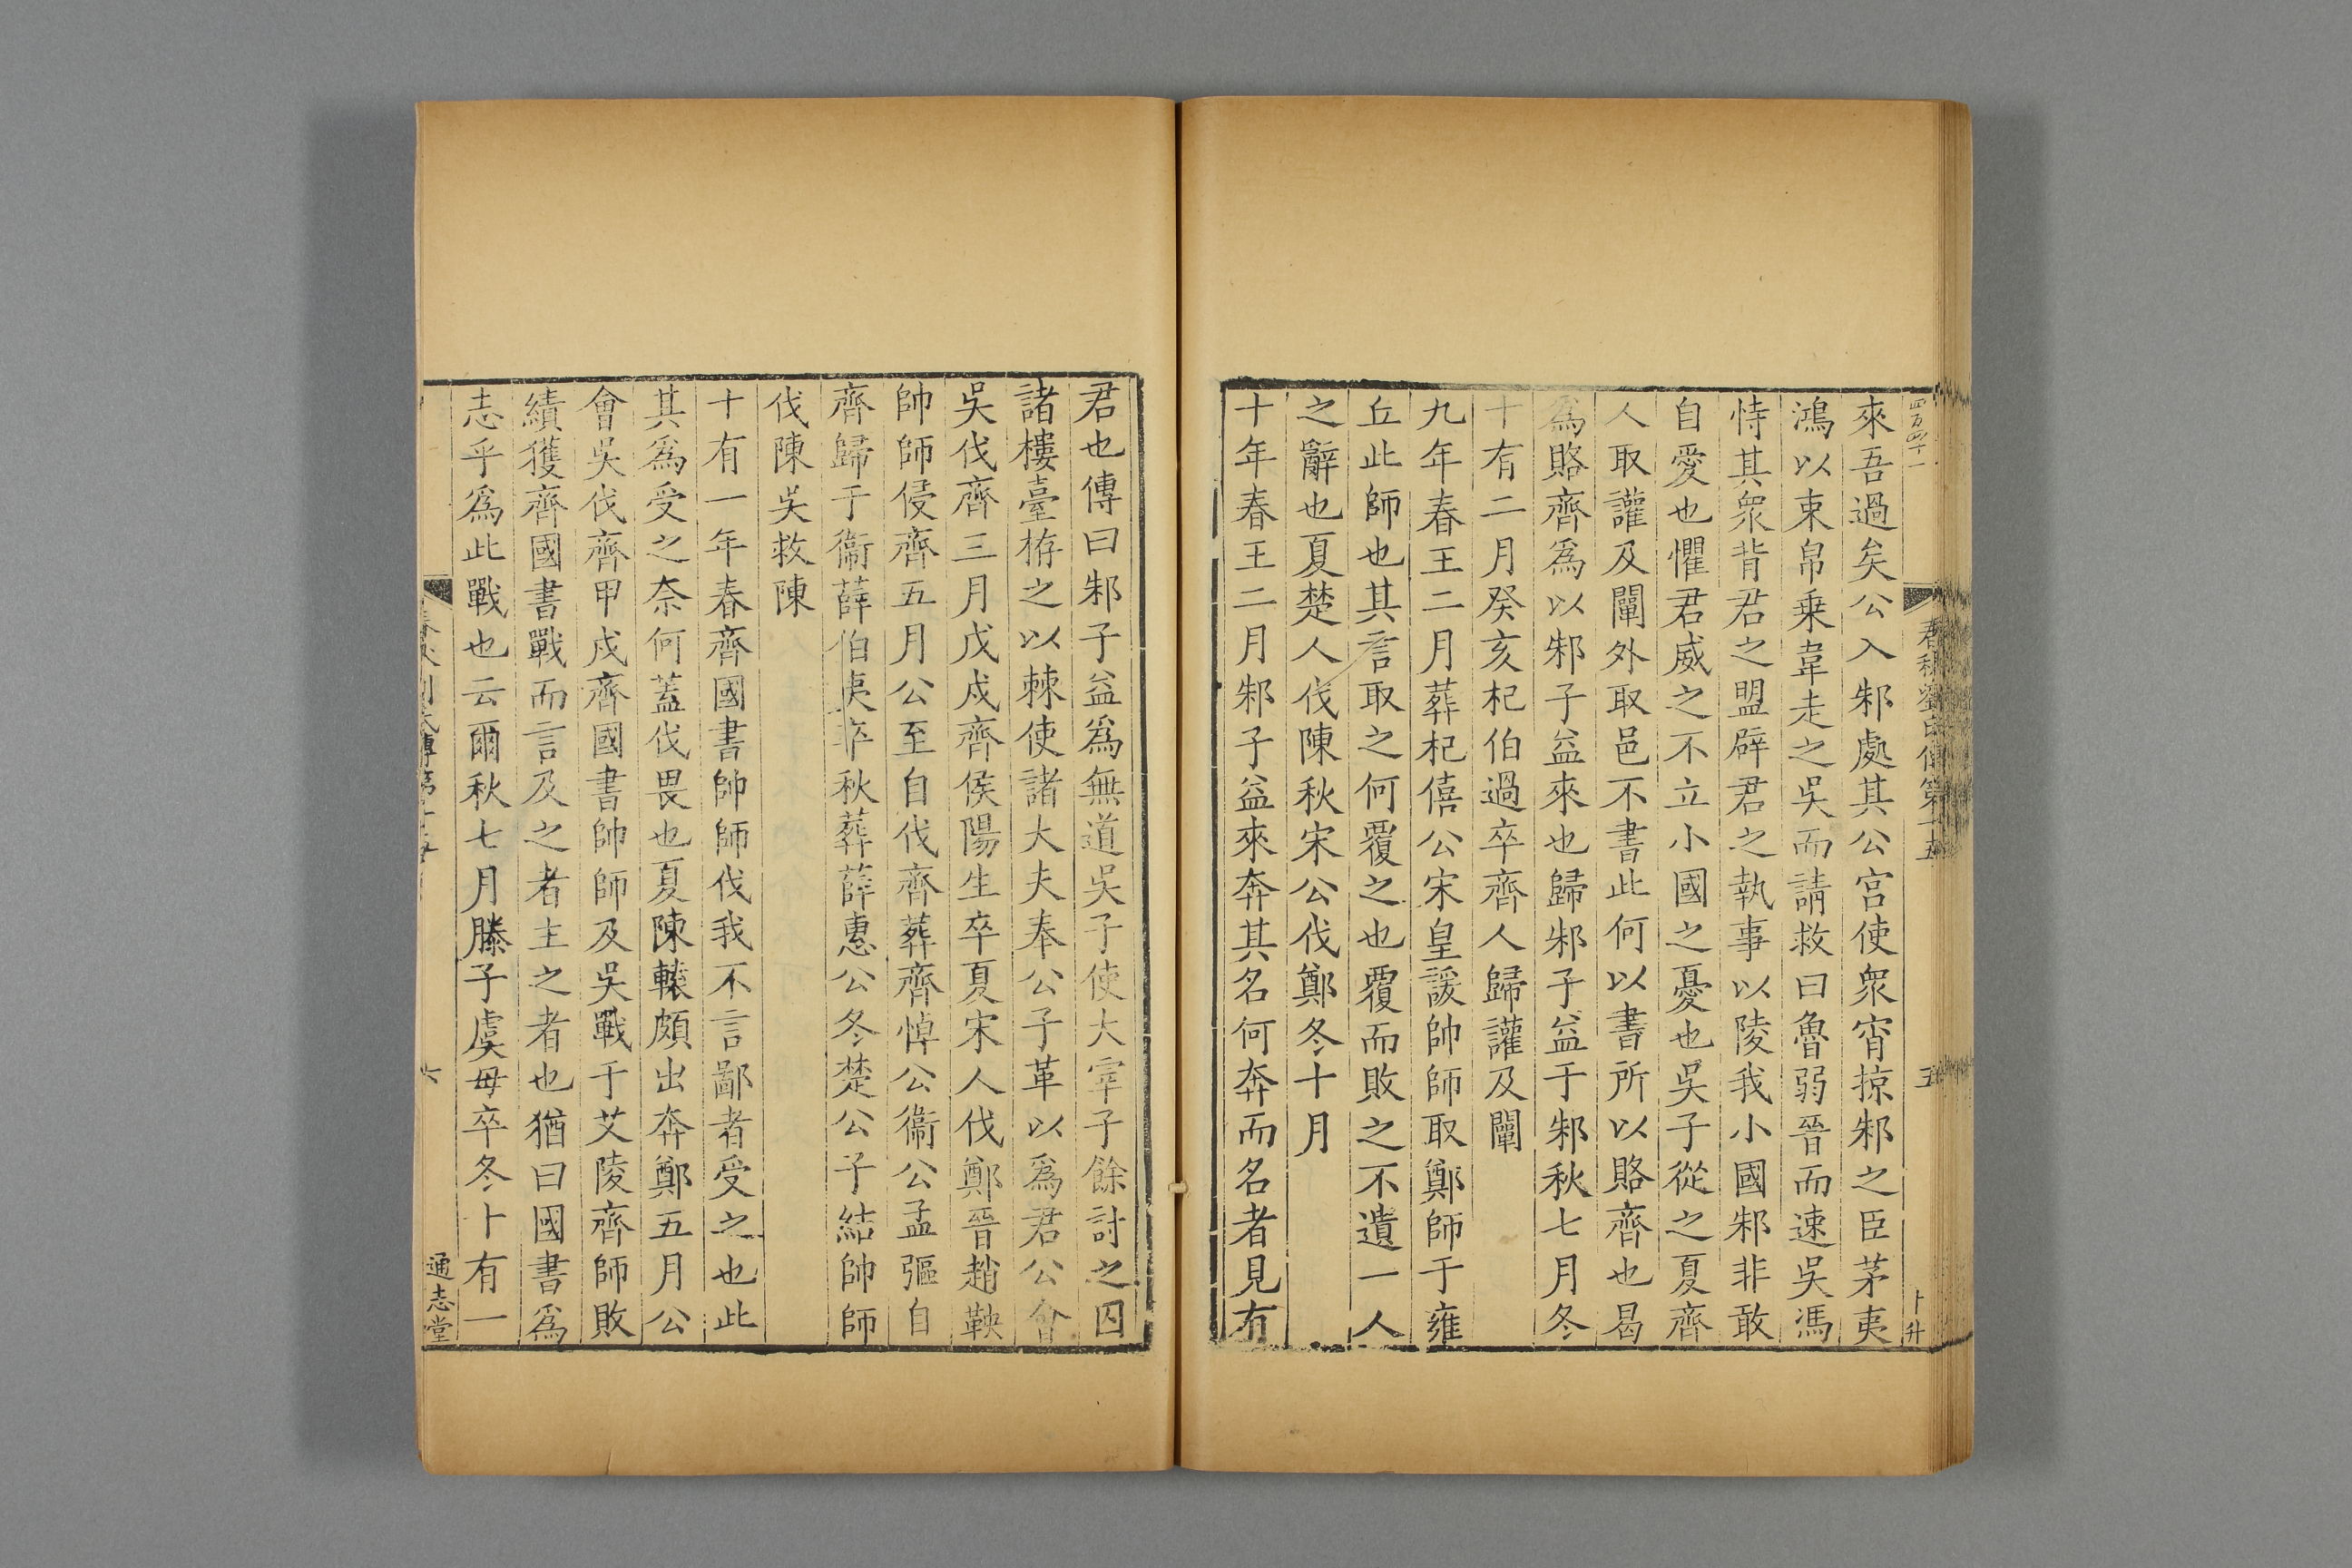 四百四十一
來吾過矣公入邾處其公宮使衆宵掠邾之臣茅夷
鴻以束帛乗韋走之吳而請救曰魯弱晉而速吳馮
恃其衆背君之盟辟君之執事以陵我小國邾非敢
自愛也懼君威之不立小國之憂也吳子從之夏齊
人取讙及闡外取邑不書此何以書所以賂齊也曷
爲賂齊爲以邾子益來也歸邾子益于邾秋七月冬
十有二月癸亥杞伯過卒齊人歸讙及闡
九年春王二月葬杞僖公宋皇瑗帥師取鄭師于雍
丘此師也其言取之何覆之也覆而敗之不遺一人
之辭也夏楚人伐陳秋宋公伐鄭冬十月
十年春王二月邾子益來奔其名何奔而名者見有
春秋劉氏傳第十五
五
卜升
君也傳曰邾子益爲無道吳子使大宰子餘討之囚
諸樓臺栫之以棘使諸大夫奉公子革以爲君公會
吳伐齊三月戊戌齊侯陽生卒夏宋人伐鄭晉趙鞅
帥師侵齊五月公至自伐齊葬齊悼公衞公孟彄自
齊歸于衞薛伯夷卒秋葬薛惠公冬楚公子結帥師
伐陳吳救陳
十有一年春齊國書帥師伐我不言鄙者受之也此
其爲受之奈何蓋伐畏也夏陳轅頗出奔鄭五月公
會吳伐齊甲戌齊國書帥師及吳戰于艾陵齊師敗
績獲齊國書戰而言及之者主之者也猶曰國書爲
志乎爲此戰也云爾秋七月滕子虞毋卒冬十有一
六
通志堂